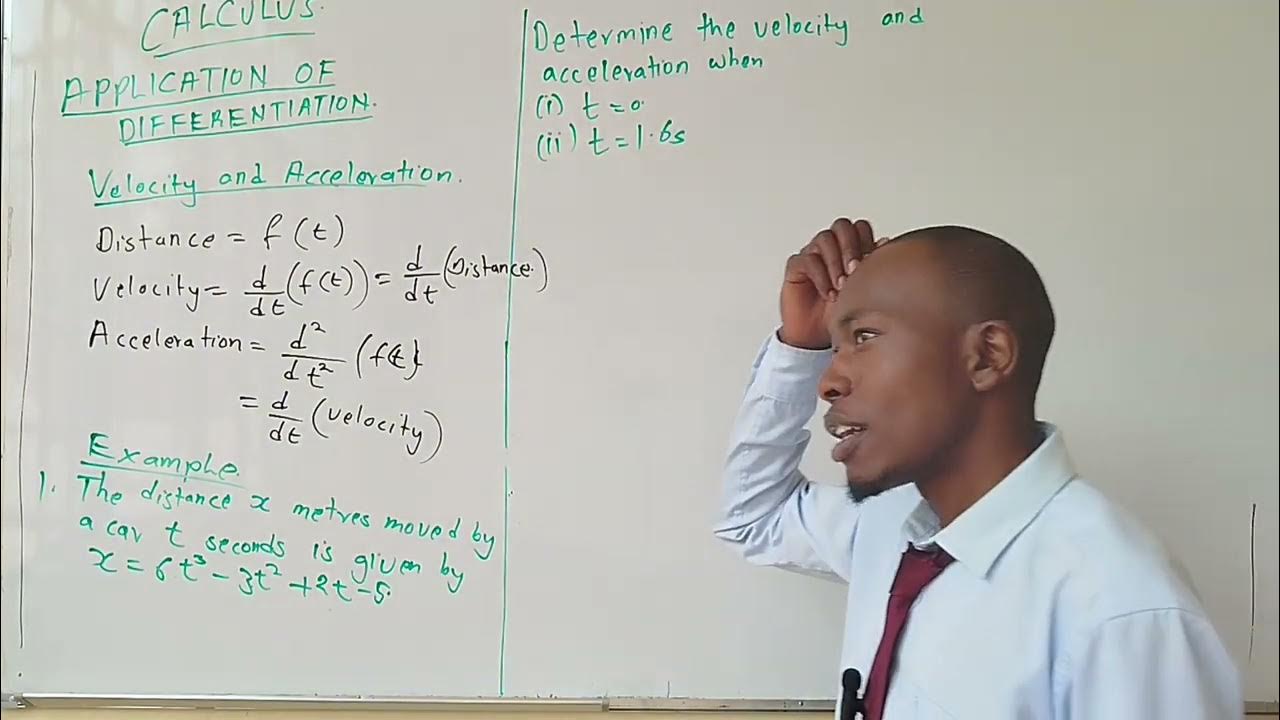 CALCULUS.
APPLICATION OF
DIFFERENTIATION.
Velocity and Acceleration.
Distance = f(t)
Velocity = d/dt (f(t)) = d/dt (Distance.)
Acceleration = d²/dt² (f(t)
= d/dt (velocity)
Example.
1. The distance x metres moved by
a car t seconds is given by
x = 6t³ - 3t² + 2t - 5.
Determine the velocity and
acceleration when
(i) t = 0.
(ii) t = 1.6s